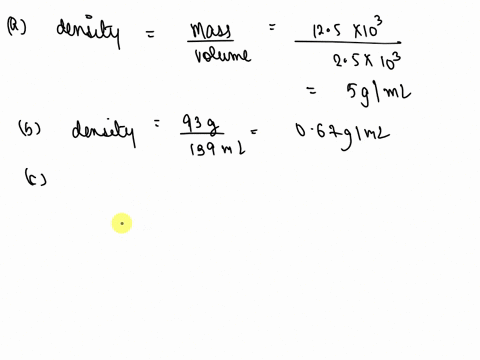 (a) density = mass / volume = 12.5 × 10³ / 2.5 × 10³
= 5 g/mL
(b) density = 93 g / 139 mL = 0.67 g/mL
(c)